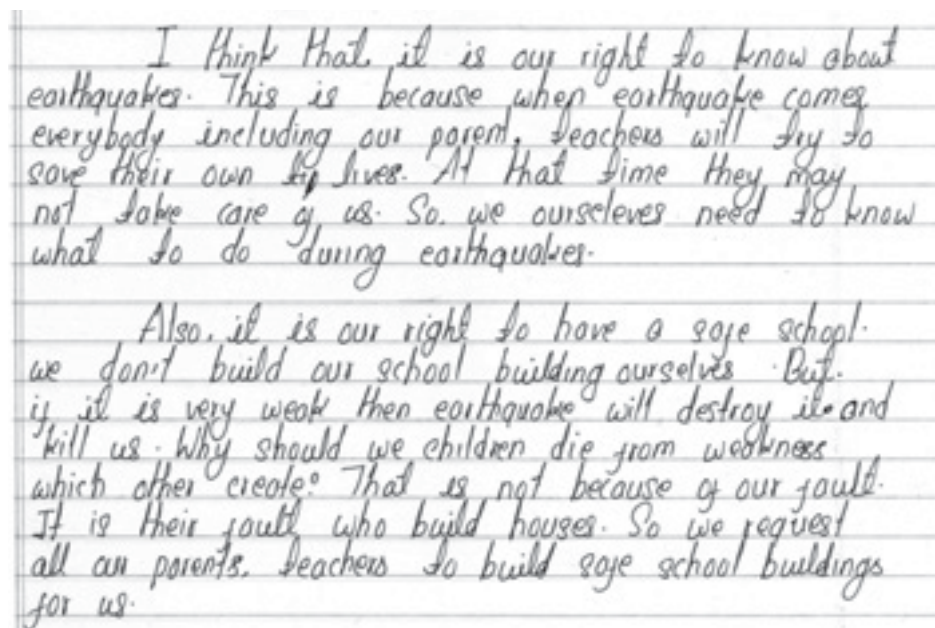 I think that, it is our right to know about
earthquakes. This is because when earthquake comes
everybody including our parent, teachers will try to
save their own lives. At that time they may
not take care of us. So, we ourseleves need to know
what to do during earthquakes.
Also, it is our right to have a safe school.
we don't build our school building ourselves. But,
if it is very weak then earthquake will destroy it and
kill us. Why should we children die from weakness
which other create? That is not because of our fault.
It is their fault who build houses. So we request
all our parents, teachers to build safe school buildings
for us.